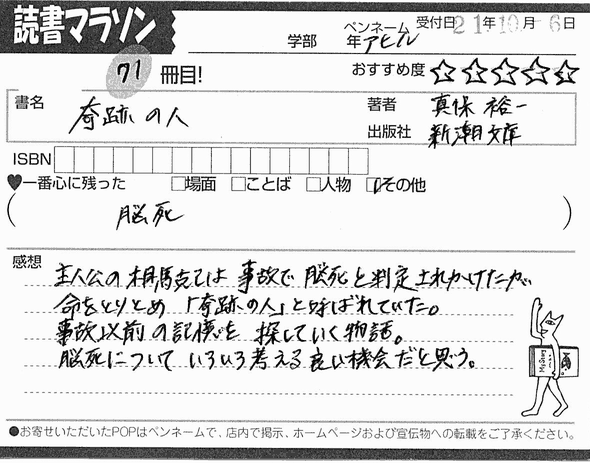 読書マラソン
学部 年 ペンネーム アヒル 受付日 21年10月-6日
71冊目! おすすめ度 ☆☆☆☆☆
書名 奇跡の人 著者 真保裕一
出版社 新潮文庫
ISBN
♥一番心に残った □場面 □ことば □人物 □その他
( 脳死 )
感想 主人公の相馬克己は事故で脳死と判定されかけたが
命をとりとめ「奇跡の人」と呼ばれていた。
事故以前の記憶を探していく物語。
脳死についていろいろ考える良い機会だと思う。
●お寄せいただいたPOPはペンネームで、店内で掲示、ホームページおよび宣伝物への転載をご了承ください。